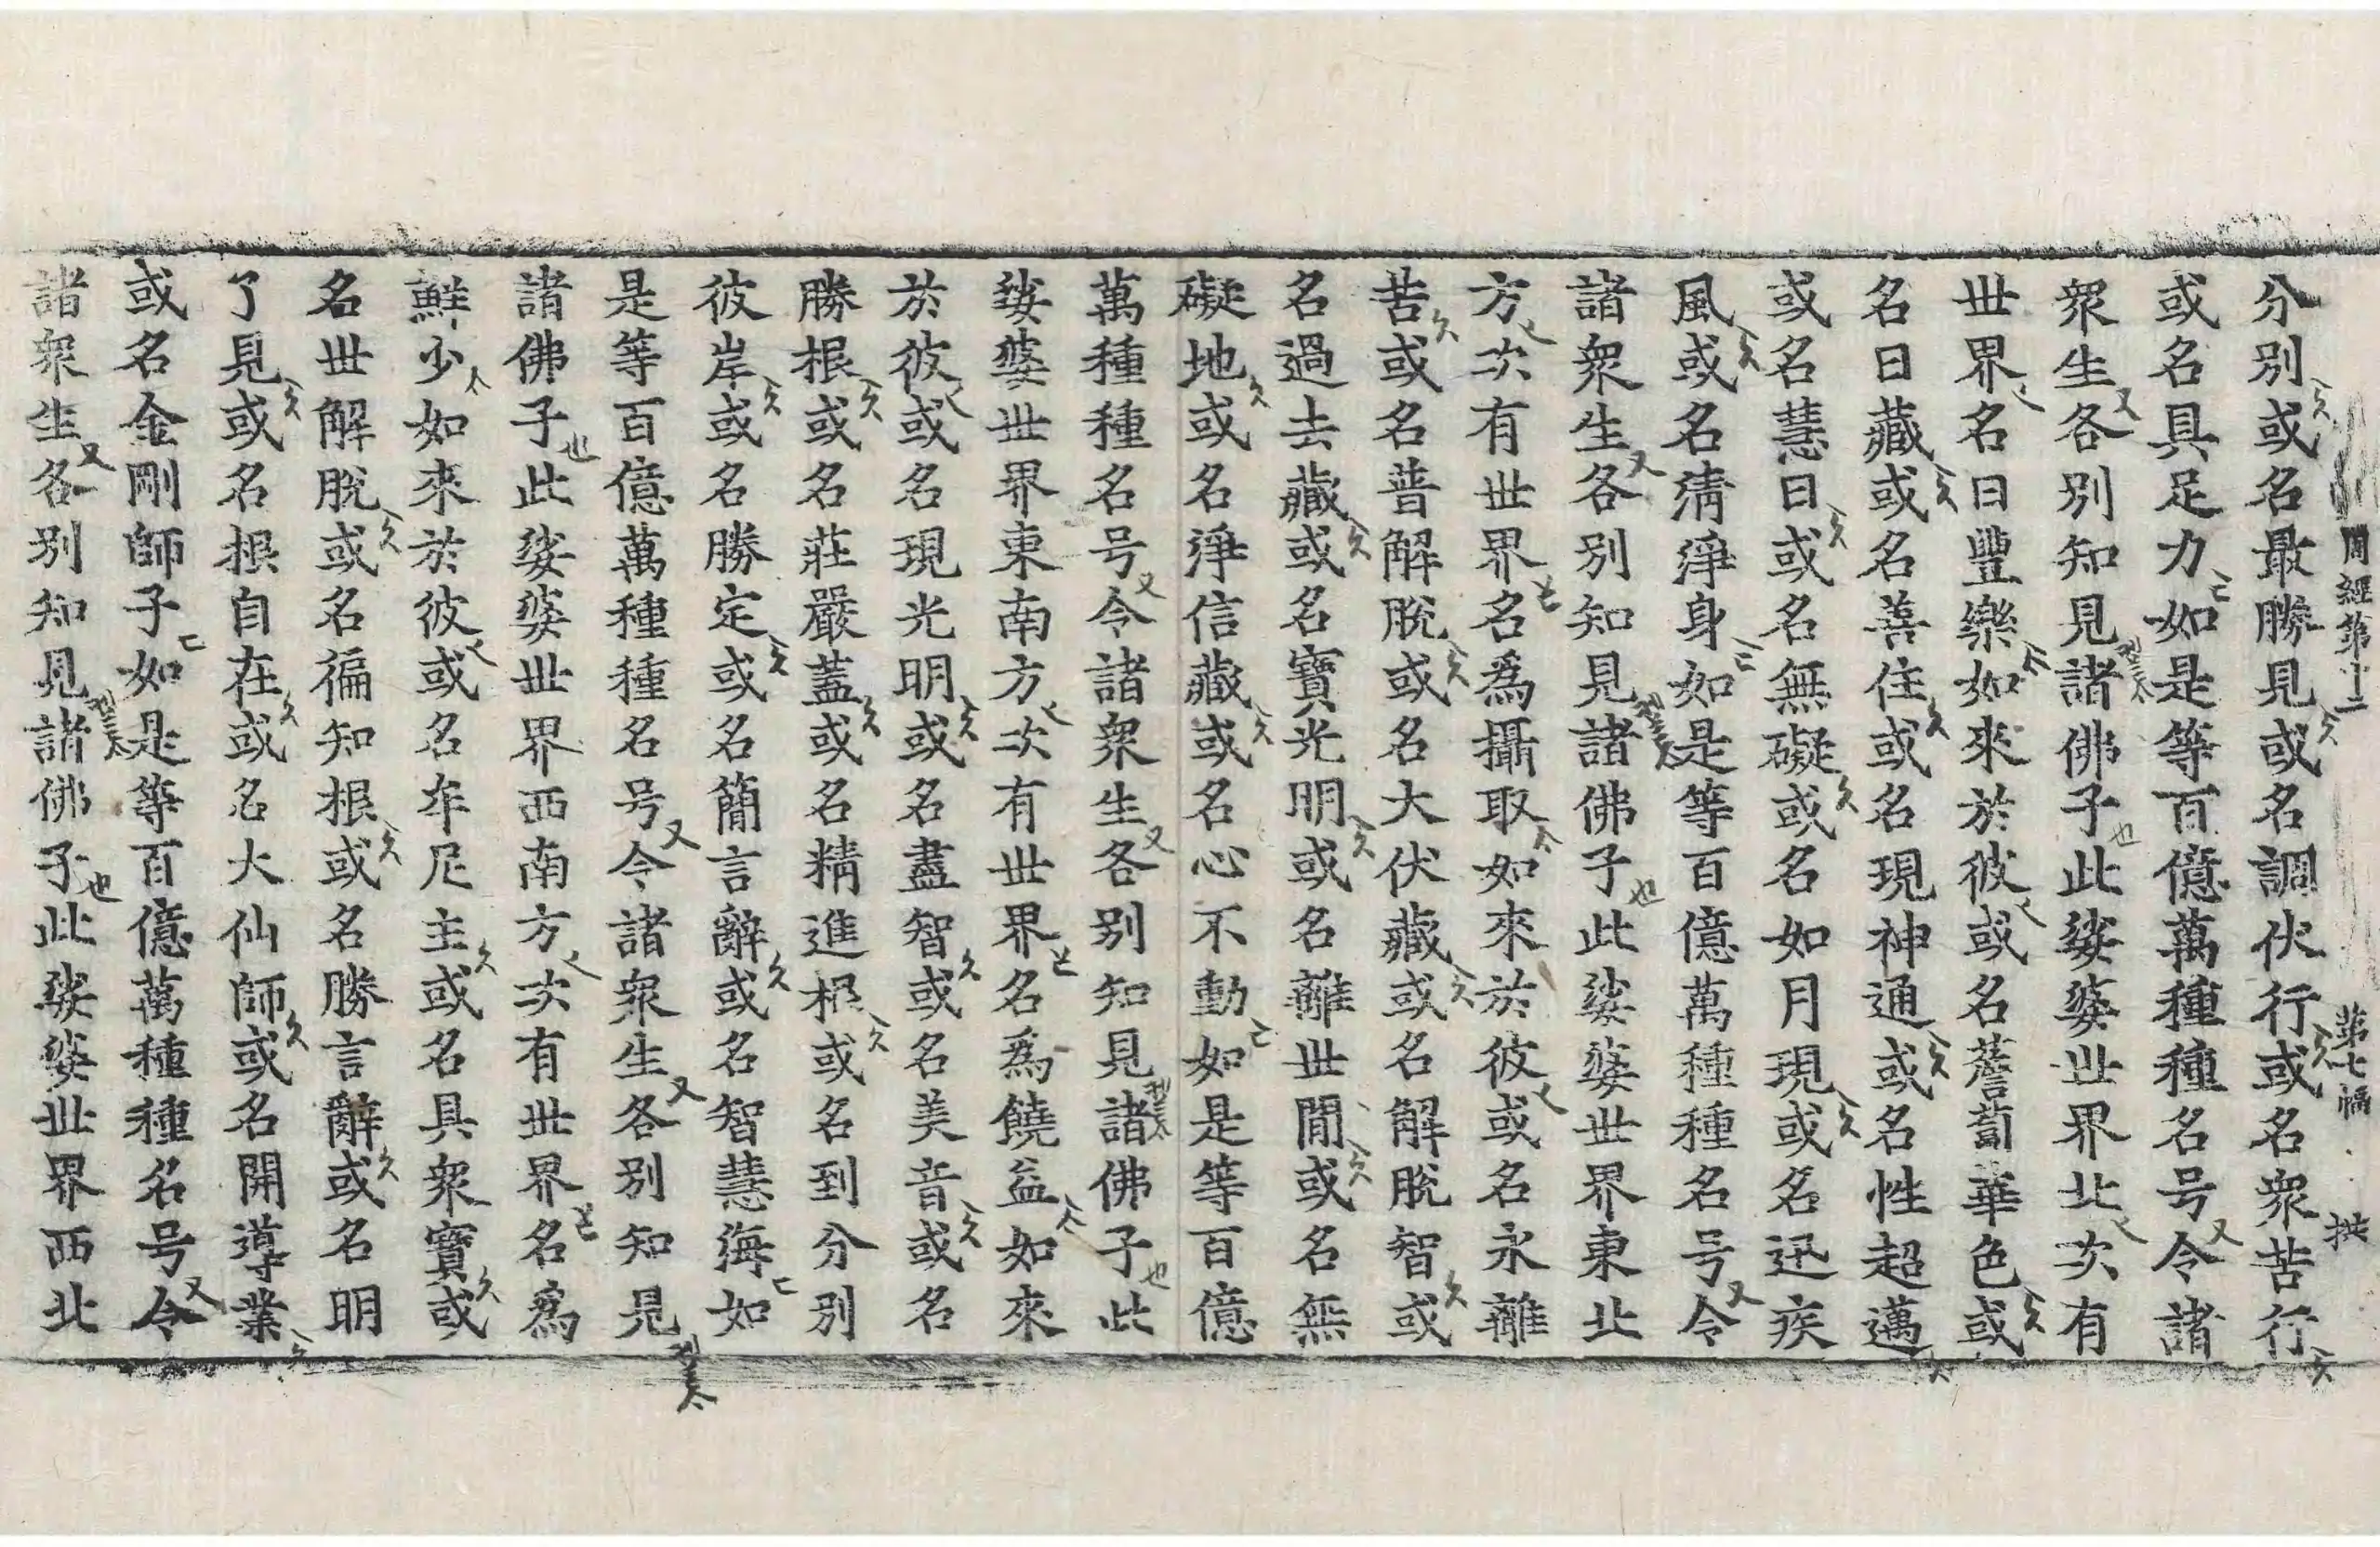 周經第十二 第七幅 拱
分別或名最勝見或名調伏行或名衆苦行
或名具足力如是等百億萬種種名号令諸
衆生各別知見諸佛子此娑婆世界北次有
世界名曰豐樂如來於彼或名薝蔔華色或
名日藏或名善住或名現神通或名性超邁
或名慧日或名無礙或名如月現或名迅疾
風或名淸淨身如是等百億萬種種名号令
諸衆生各別知見諸佛子此娑婆世界東北
方次有世界名爲攝取如來於彼或名永離
苦或名普解脫或名大伏藏或名解脫智或
名過去藏或名寶光明或名離世閒或名無
礙地或名淨信藏或名心不動如是等百億
萬種種名号令諸衆生各別知見諸佛子此
娑婆世界東南方次有世界名爲饒益如來
於彼或名現光明或名盡智或名美音或名
勝根或名莊嚴蓋或名精進根或名到分別
彼岸或名勝定或名簡言辭或名智慧海如
是等百億萬種種名号令諸衆生各別知見
諸佛子此娑婆世界西南方次有世界名爲
鮮少如來於彼或名牟尼主或名具衆寶或
名世解脫或名徧知根或名勝言辭或名明
了見或名根自在或名大仙師或名開導業
或名金剛師子如是等百億萬種種名号令
諸衆生各別知見諸佛子此娑婆世界西北